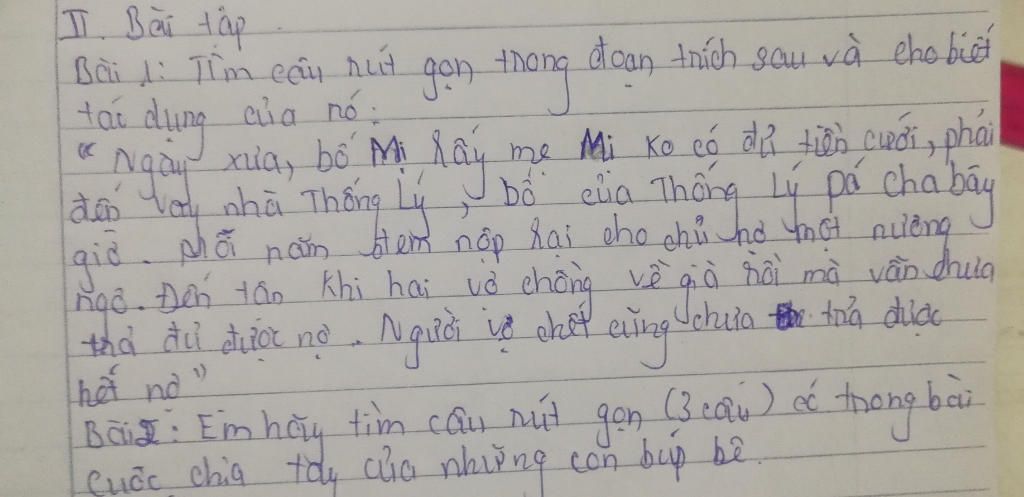 II. Bài tập
Bài 1: Tìm câu rút gọn trong đoạn trích sau và cho biết
tác dụng của nó:
"Ngày xưa, bố Mị lấy mẹ Mị ko có đủ tiền cưới, phải
đến vay nhà Thống Lý, bố của Thống Lý Pá cha bây
giờ. Mỗi năm đem nộp lại cho chủ nợ một nương
ngô. Đến tận khi hai vợ chồng về già rồi mà vẫn chưa
trả đủ được nợ. Người vợ chết cũng chưa trả được
hết nợ"
Bài 2: Em hãy tìm câu rút gọn (3 câu) có trong bài
cuộc chia tay của những con búp bê.